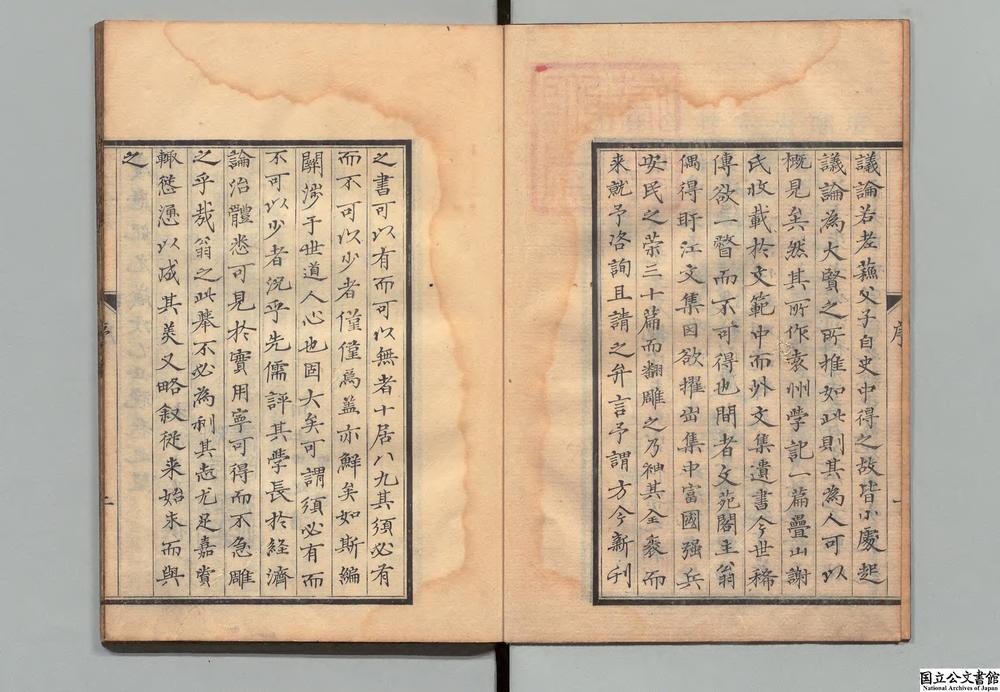 議論若老蘓父子自史中得之故皆小處起
議論為大賢之所推如此則其為人可以
概見矣然其所作袁州學記一篇疊山謝
氏收載於文範中而外文集遺書今世稀
傳欲一瞥而不可得也間者文苑閣主翁
偶得盱江文集因欲擢出集中富國强兵
安民之策三十篇而翻雕之乃袖其全袠而
来就予咨詢且請之弁言予謂方今新刊
序
之書可以有而可以無者十居八九其須必有
而不可以少者僅僅爲蓋亦鮮矣如斯編
關渉于世道人心也固大矣可謂須必有而
不可以少者況乎先儒評其學長於経濟
論治體悉可見於實用寧可得而不急雕
之乎哉翁之此舉不必為利其志尤足嘉賞
輙慫慂以成其美又略叙従来始末而與
之
国立公文書館
National Archives of Japan